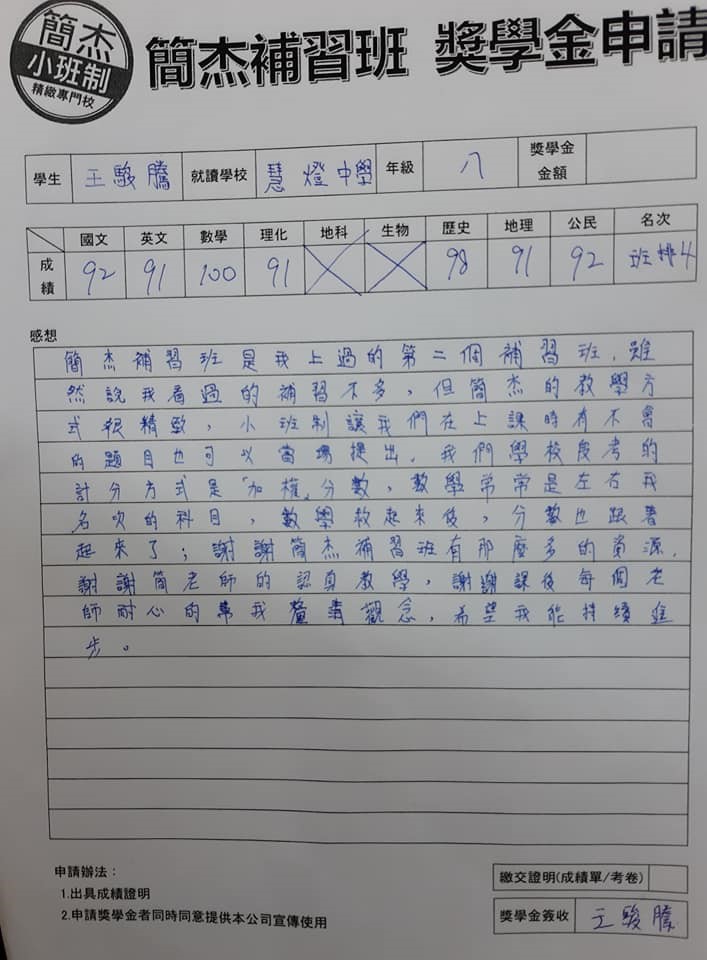 簡杰
小班制
精緻專門校
簡杰補習班 獎學金申請
學生 王駿騰 就讀學校 慧燈中學 年級 八 獎學金金額
國文 英文 數學 理化 地科 生物 歷史 地理 公民 名次
成績 92 91 100 91 98 91 92 班排4
感想
簡杰補習班是我上過的第二個補習班,雖
然說我看過的補習不多,但簡杰的教學方
式很精致,小班制讓我們在上課時有不會
的題目也可以當場提出.我們學校段考的
計分方式是「加權」分數,數學常常是左右我
名次的科目,數學救起來後,分數也跟著
起來了;謝謝簡杰補習班有那麼多的資源.
謝謝簡老師的認真教學,謝謝課後每個老
師耐心的幫我釐清觀念,希望我能持續進
步。
申請辦法:
1.出具成績證明
2.申請獎學金者同時同意提供本公司宣傳使用
繳交證明(成績單/考卷)
獎學金簽收 王駿騰